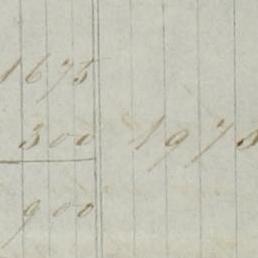 1675
300 1975
900